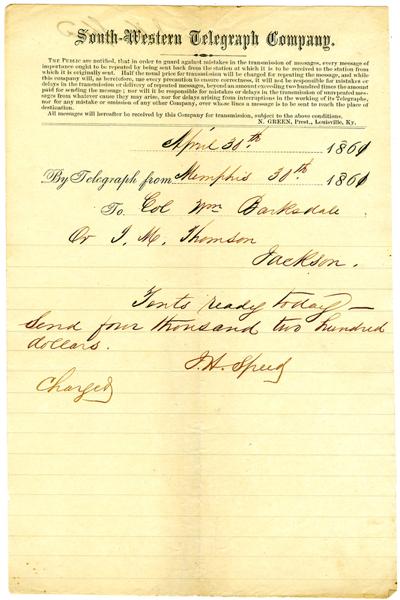 South-Western Telegraph Company.
THE PUBLIC are notified, that in order to guard against mistakes in the transmission of messages, every message of
importance ought to be repeated by being sent back from the station at which it is to be received to the station from
which it is originally sent. Half the usual price for transmission will be charged for repeating the message, and while
this company will, as heretofore, use every precaution to ensure correctness, it will not be responsible for mistakes or
delays in the transmission or delivery of repeated messages, beyond an amount exceeding two hundred times the amount
paid for sending the message; nor will it be responsible for mistakes or delays in the transmission of unrepeated mes-
sages from whatever cause they may arise, nor for delays arising from interruptions in the working of its Telegraphs,
nor for any mistake or omission of any other Company, over whose lines a message is to be sent to reach the place of
destination.
All messages will hereafter be received by this Company for transmission, subject to the above conditions.
N. GREEN, Prest., Louisville, Ky.
April 30th 1861
By Telegraph from Memphis 30th 1861
To Col Wm Barksdale
Or J. M. Thomson
Jackson.
Tents ready today—
Send four thousand two hundred
dollars.
J. H. Speed
Charged